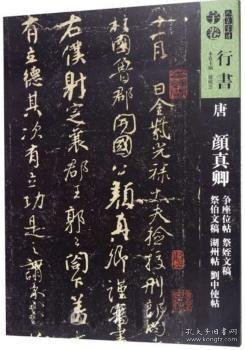 子卷
行書
唐 顏真卿
争座位帖 祭姪文稿
祭伯文稿 湖州帖 劉中使帖
十一月 日金紫光祿大夫檢校刑部
柱國魯郡開國公顏真卿謹奉書
右僕射定襄郡王郭公閣下蓋
有立德其次有立功是之謂